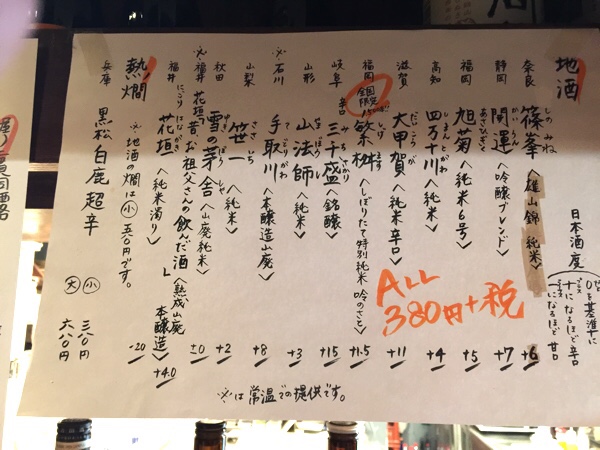 地酒
日本酒度
0を基準に
+になるほど辛口
プラス
-になるほど甘口
奈良 篠峯〈雄山錦 純米〉 +6
しの みね
静岡 開運〈吟醸ブレンド〉 +7
かいうん
福岡 旭菊〈純米6号〉 +5
あさひぎく
高知 四万十川〈純米〉 +4
しまんとがわ
滋賀 大甲賀〈純米辛口〉 +11
だいこうが
福岡 繁桝〈しぼりたて特別純米 吟のさと〉 +1.5
全国限定
しげ ます
岐阜 辛口 三千盛〈銘醸〉 +15
みちさかり
山形 山法師〈純米〉 +3
やまほうし
※石川 手取川〈本醸造山廃〉
てどりがわ
山梨 笹一〈純米〉 +8
ささいち
秋田 雪の茅舎〈山廃純米〉 +2
ゆきのぼうしゃ
※福井 花垣「昔、お祖父さんの飲んだ酒」〈熟成山廃本醸造〉 ±0
福井 にごり 花垣〈純米濁り〉
はながき
+4.0
-20
ALL
380円+税
熱燗
※地酒の燗は小五〇円です。
兵庫 黒松白鹿 超辛
小 三八〇円
大 六八〇円
※は常温での提供です。